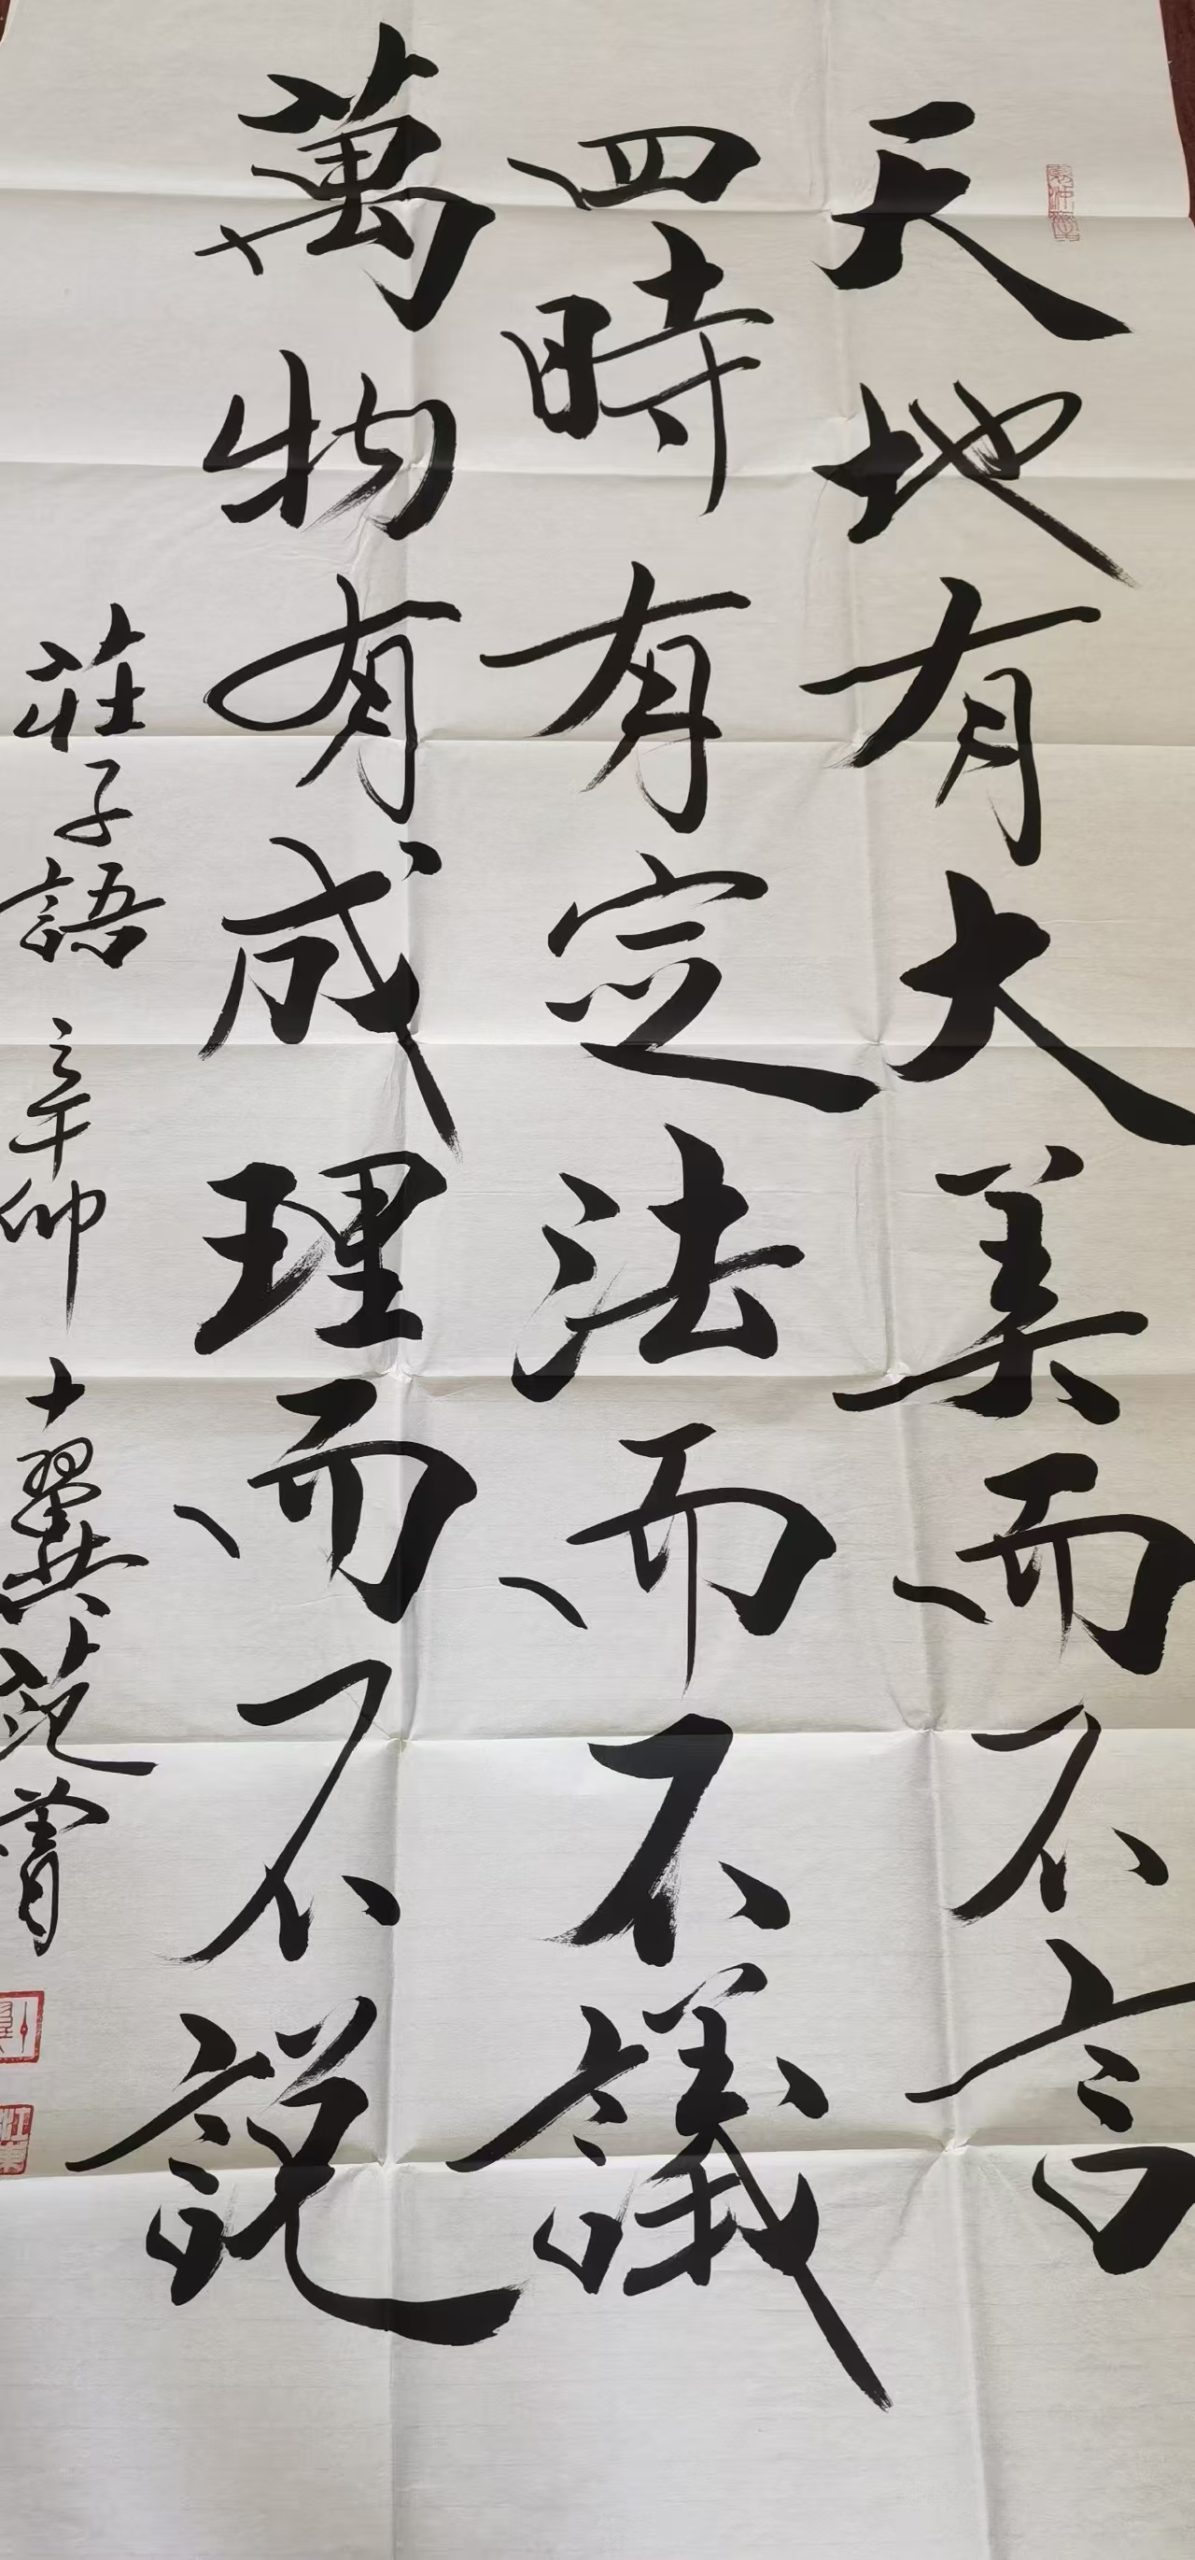 天地有大美而不言
四時有定法而不議
萬物有成理而不說
莊子語 辛卯 十翼范曾
江東